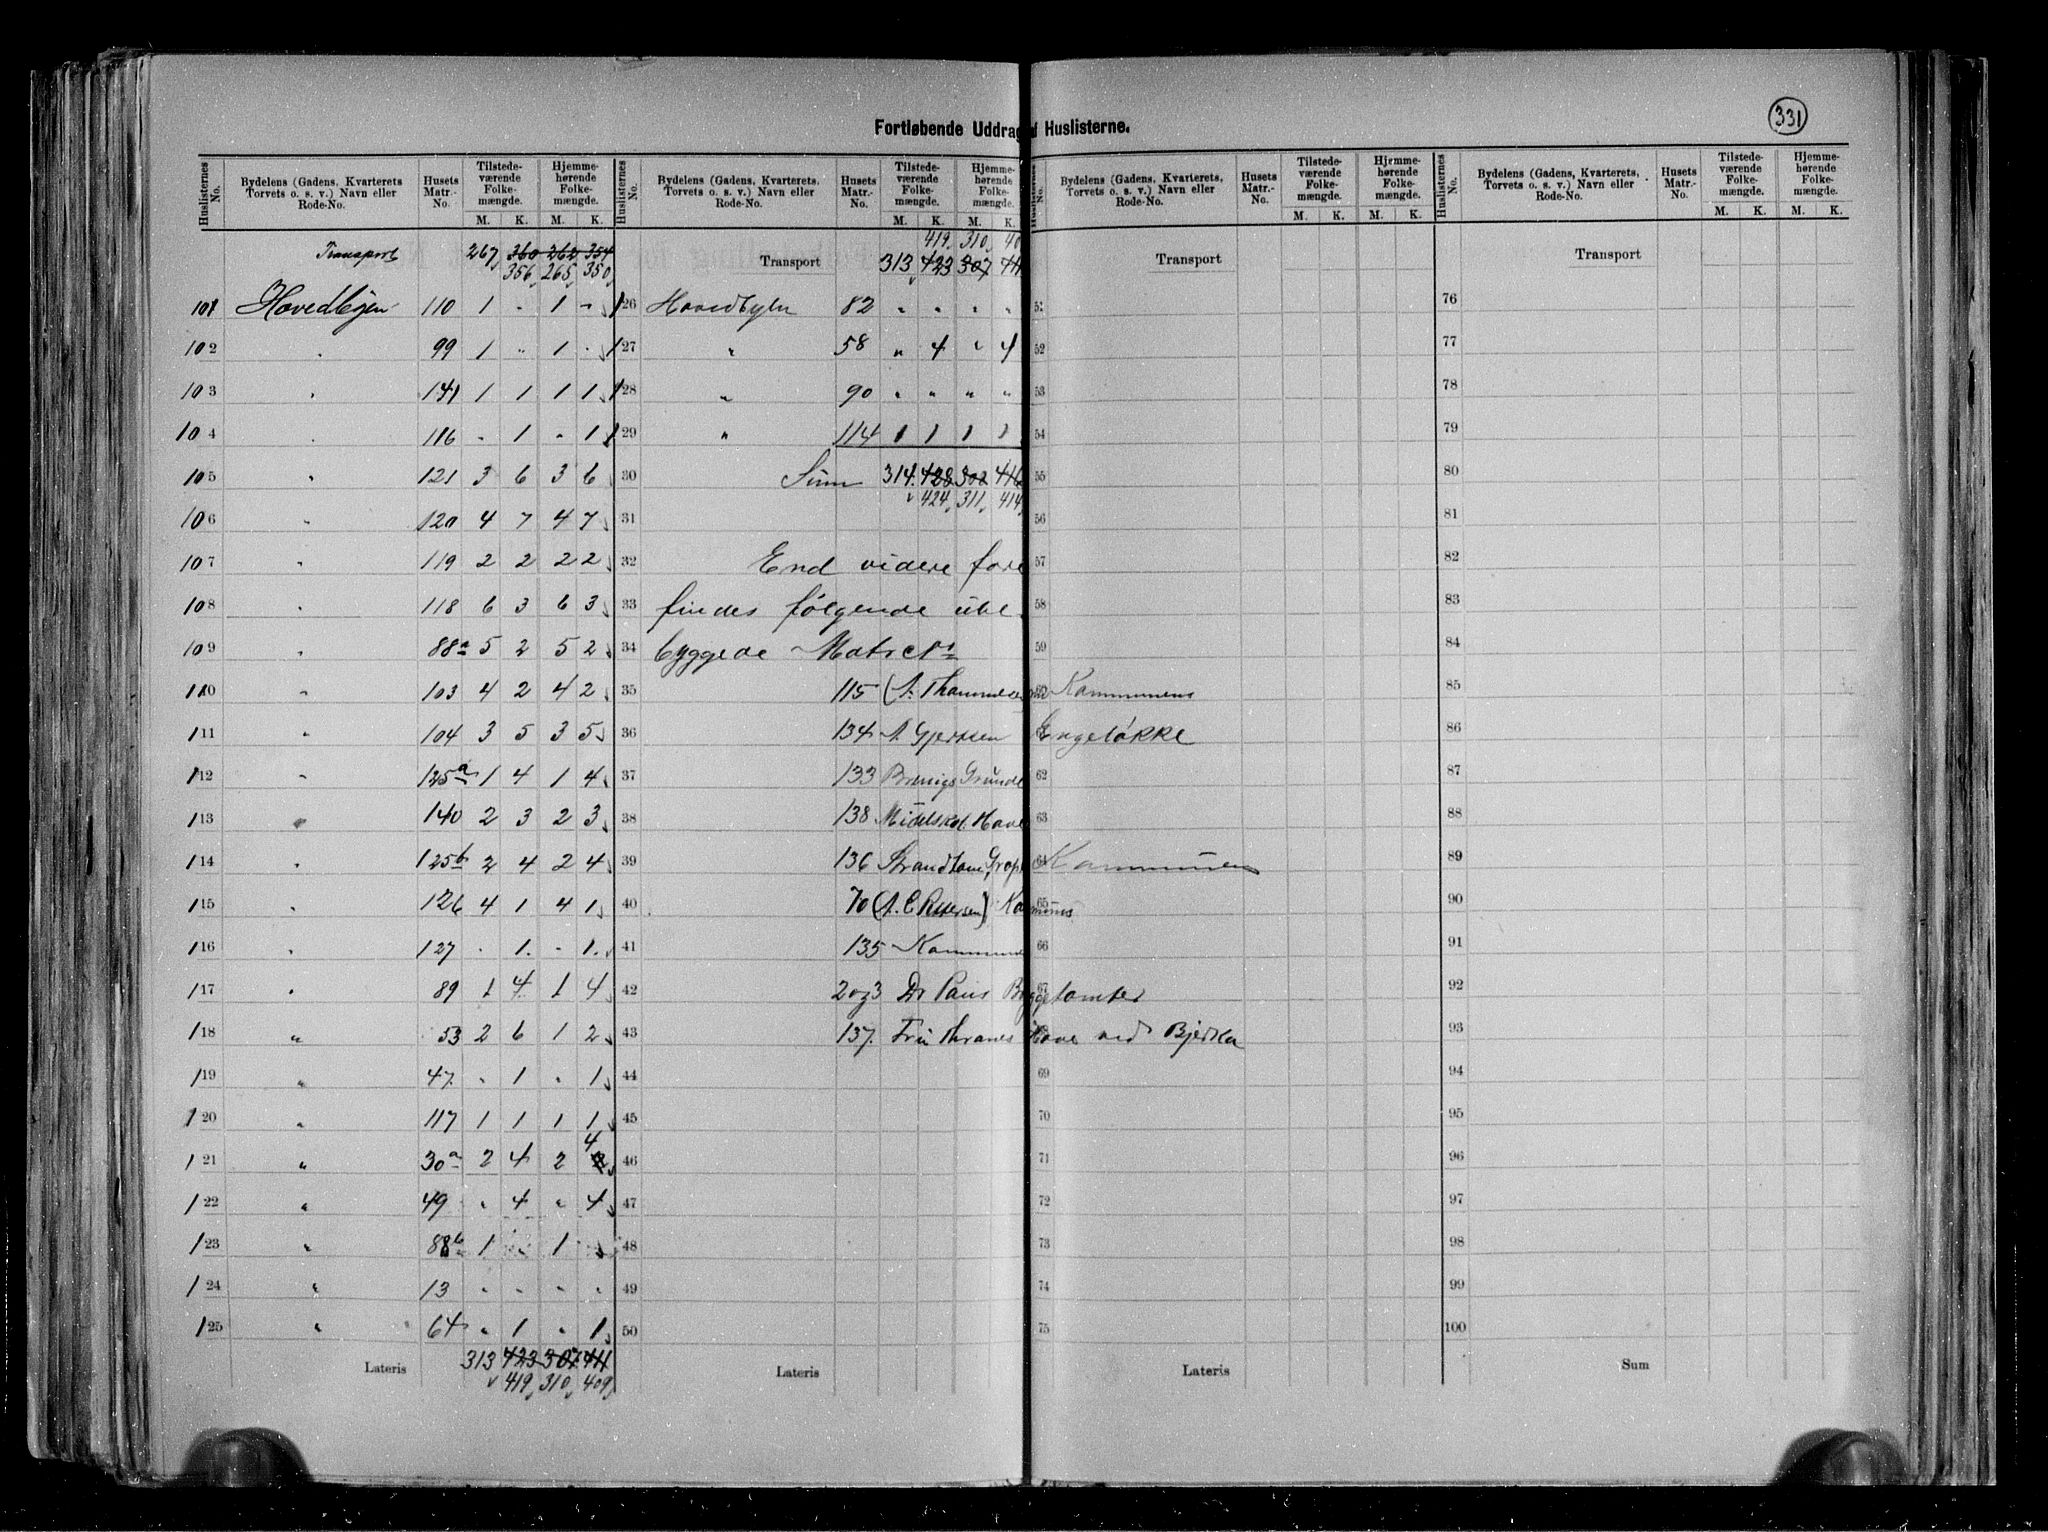 331
Fortløbende Uddrag Huslisterne.
Huslisternes No. Bydelens (Gadens, Kvarterets, Torvets o. s. v.) Navn eller Rode-No. Husets Matr.-No. Tilstede-værende Folke-mængde. M. K. Hjemme-hørende Folke-mængde. M. K.
Transport 267 360 262 354
356 265 350
101 Hovedbyen 110 1 " 1 "
102 " 99 1 " 1 "
103 " 141 1 1 1 1
104 " 116 " 1 " 1
105 " 121 3 6 3 6
106 " 120 4 7 4 7
107 " 119 2 2 2 2
108 " 118 6 3 6 3
109 " 88a 5 2 5 2
110 " 103 4 2 4 2
111 " 104 3 5 3 5
112 " 125a 1 4 1 4
113 " 140 2 3 2 3
114 " 125b 2 4 2 4
115 " 126 4 1 4 1
116 " 127 " 1 " 1
117 " 89 1 4 1 4
118 " 53 2 6 1 2
119 " 47 " 1 " 1
120 " 117 1 1 1 1
121 " 30a 2 4 2 4
122 " 49 " 4 " 4
123 " 88b 1 " 1 "
124 " 13 " " " "
125 " 64 " 1 " 1
Lateris 313 423 307 411
419 310 409
Huslisternes No. Bydelens (Gadens, Kvarterets, Torvets o. s. v.) Navn eller Rode-No. Husets Matr.-No. Tilstede-værende Folke-mængde. M. K. Hjemme-hørende Folke-mængde. M. K.
419 310 40
Transport 313 423 307 411
126 Hovedbyen 82 " " " "
127 " 58 " 4 " 4
128 " 90 " " " "
129 " 114 1 1 1 1
30 Sum 314 428 302 416
424 311 414
31
32 End videre fore
33 findes følgende ube
34 byggede Matr.
35 115 (A. Thommesen Kommunens
36 134 A. Gjerksen Engeløkke
37 133 Grunde
38 138 Midelskol. Have
39 136 Kommunen
40 70 (A. C. Pettersen) Kommunes
41 135 Kommune
42 2 og 3 Dr Paus Byggetomter
43 137. Fru Thranes Have ved
44
45
46
47
48
49
50
Lateris
Huslisternes No. Bydelens (Gadens, Kvarterets, Torvets o. s. v.) Navn eller Rode-No. Husets Matr.-No. Tilstede-værende Folke-mængde. M. K. Hjemme-hørende Folke-mængde. M. K.
Transport
51
52
53
54
55
56
57
58
59
60
62
63
64
65
66
67
69
70
71
72
73
74
75
Lateris
Huslisternes No. Bydelens (Gadens, Kvarterets, Torvets o. s. v.) Navn eller Rode-No. Husets Matr.-No. Tilstede-værende Folke-mængde. M. K. Hjemme-hørende Folke-mængde. M. K.
Transport
76
77
78
79
80
81
82
83
84
85
86
87
88
89
90
91
92
93
94
95
96
97
98
99
100
Sum